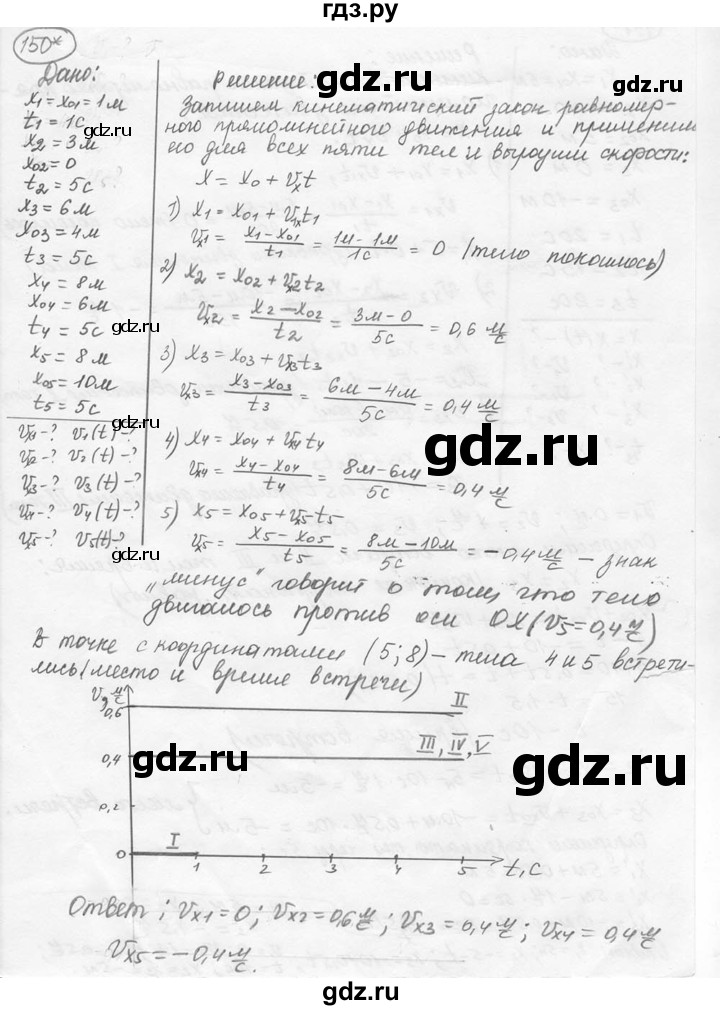 гдз.ру
150*
Дано:
x₁ = x₀₁ = 1м
t₁ = 1с
x₂ = 3м
x₀₂ = 0
t₂ = 5с
x₃ = 6м
x₀₃ = 4м
t₃ = 5с
x₄ = 8м
x₀₄ = 6м
t₄ = 5с
x₅ = 8м
x₀₅ = 10м
t₅ = 5с
Vₓ₁ - ? V₁(t) - ?
Vₓ₂ - ? V₂(t) - ?
Vₓ₃ - ? V₃(t) - ?
Vₓ₄ - ? V₄(t) - ?
Vₓ₅ - ? V₅(t) - ?
Решение:
Запишем кинематический закон равномер-
ного прямолинейного движения и применим
его для всех пяти тел и выразим скорости:
x = x₀ + Vₓt
1) x₁ = x₀₁ + Vₓt₁
Vₓ₁ = (x₁ - x₀₁)/t₁ = (1м - 1м)/1с = 0 (тело покоилось)
2) x₂ = x₀₂ + Vₓ₂t₂
Vₓ₂ = (x₂ - x₀₂)/t₂ = (3м - 0)/5с = 0,6 м/с
3) x₃ = x₀₃ + Vₓ₃t₃
Vₓ₃ = (x₃ - x₀₃)/t₃ = (6м - 4м)/5с = 0,4 м/с
4) x₄ = x₀₄ + Vₓ₄t₄
Vₓ₄ = (x₄ - x₀₄)/t₄ = (8м - 6м)/5с = 0,4 м/с
5) x₅ = x₀₅ + Vₓ₅t₅
Vₓ₅ = (x₅ - x₀₅)/t₅ = (8м - 10м)/5с = -0,4 м/с - знак
„минус" говорит о том, что тело
двигалось против оси OX (V₅ = 0,4 м/с)
В точке с координатами (5; 8) - тела 4 и 5 встрети-
лись (место и время встречи)
V, м/с
0,6
II
0,4
III, IV, V
0,2
I
0 1 2 3 4 5 t, с
Ответ: Vₓ₁ = 0; Vₓ₂ = 0,6 м/с; Vₓ₃ = 0,4 м/с; Vₓ₄ = 0,4 м/с
Vₓ₅ = -0,4 м/с.
gdz.ru
gdz.ru
gdz.ru
gdz.ru
gdz.ru
gdz.ru
gdz.ru
gdz.ru
gdz.ru
gdz.ru
gdz.ru
gdz.ru
gdz.ru
gdz.ru
гдз.ру